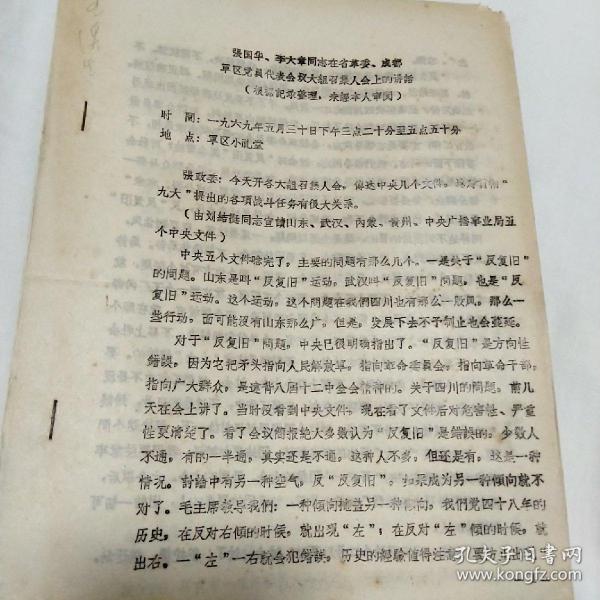 張国华、李大章同志在省革委、成都
軍区党員代表会议大組召集人会上的讲話
（根据記录整理，未經本人审閱）
时 間：一九六九年五月三十日下午三点二十分至五点五十分
地 点：軍区小礼堂
張政委：今天开各大組召集人会，传达中央几个文件。这对貫彻“
九大”提出的各項战斗任务有很大关系。
（由刘結挺同志宣讀山东、武汉、內蒙、貴州、中央广播事业局五
个中央文件）
中央五个文件唸完了，主要的問題有那么几个。一是关于“反复旧”
的問題。山东是叫“反复旧”运动。武汉叫“反复旧”問題，也是“反
复旧”运动。这个运动，这个問題在我們四川也有那么一股风，那么一
些行动。面可能沒有山东那么广，但是，发展下去不予制止也会蔓延。
对于“反复旧”問題，中央已很明确指出了。“反复旧”是方向性
錯誤，因为它把矛头指向人民解放軍，指向革命委員会，指向革命干部，
指向广大群众，是違背八届十二中全会精神的。关于四川的問題，前几
天在会上讲了。当时沒看到中央文件，現在看了文件后对危害性、严重
性更清楚了。看了会议簡报絕大多数认为“反复旧”是錯誤的。少数人
不通，有的一半通，其实还是不通。这种人不多，但还是有，这是一种
情况。討論中有另一种空气，反“反复旧”，如果成为另一种傾向就不
对了。毛主席教导我們：一种傾向掩盖另一种傾向。我們党四十八年的
历史，在反对右傾的时候，就出現“左”；在反对“左”傾的时候，就
出右。一“左”一右就会犯錯誤，历史的經驗值得注意
孔夫子旧书网
www.kongfz.com